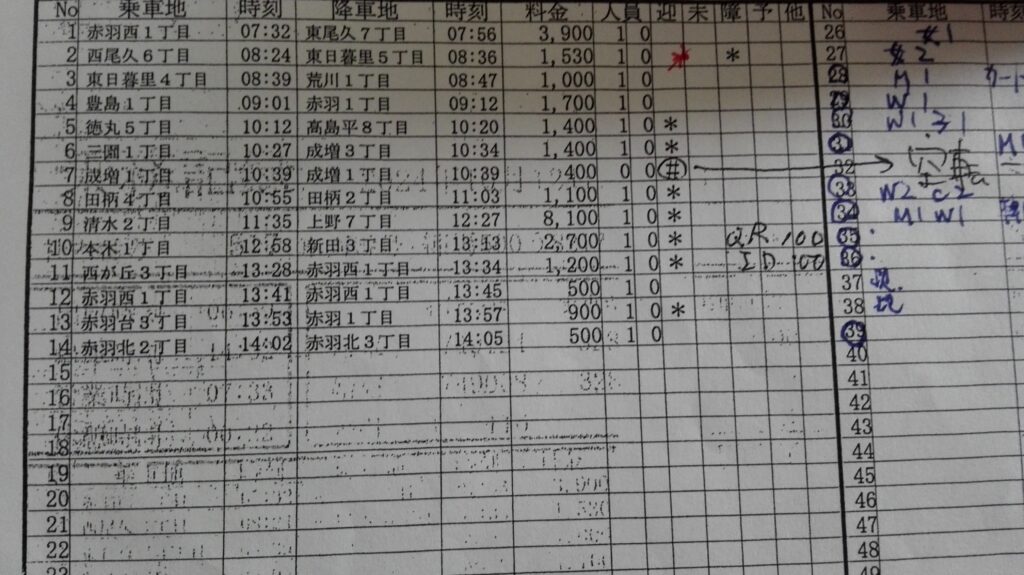 No 乗車地 時刻 降車地 時刻 料金 人員 迎 未 障 予 他
1 赤羽西1丁目 07:32 東尾久7丁目 07:56 3,900 1 0
2 西尾久6丁目 08:24 東日暮里5丁目 08:36 1,530 1 0 * *
3 東日暮里4丁目 08:39 荒川1丁目 08:47 1,000 1 0
4 豊島1丁目 09:01 赤羽1丁目 09:12 1,700 1 0
5 徳丸5丁目 10:12 高島平8丁目 10:20 1,400 1 0 *
6 三園1丁目 10:27 成増3丁目 10:34 1,400 1 0 *
7 成増1丁目 10:39 成増1丁目 10:39 400 0 0 #
8 田柄4丁目 10:55 田柄2丁目 11:03 1,100 1 0 *
9 清水2丁目 11:35 上野7丁目 12:27 8,100 1 0 *
10 本木1丁目 12:58 新田3丁目 13:13 2,700 1 0 * QR 100
11 西が丘3丁目 13:28 赤羽西1丁目 13:34 1,200 1 0 * ID 100
12 赤羽西1丁目 13:41 赤羽西1丁目 13:45 500 1 0
13 赤羽台3丁目 13:53 赤羽1丁目 13:57 900 1 0 *
14 赤羽北2丁目 14:02 赤羽北3丁目 14:05 500 1 0
15
16
17
18
19
20
21
22
23
No 乗車地 時刻
26 女1
27 女2
28 M1 カード
29 W1
30 W1 子1
31 M1
32 空車
33 W2 C2
34 M1 W1
35
36
37 現
38 現
39
40
41
42
43
44
45
46
47
48
49